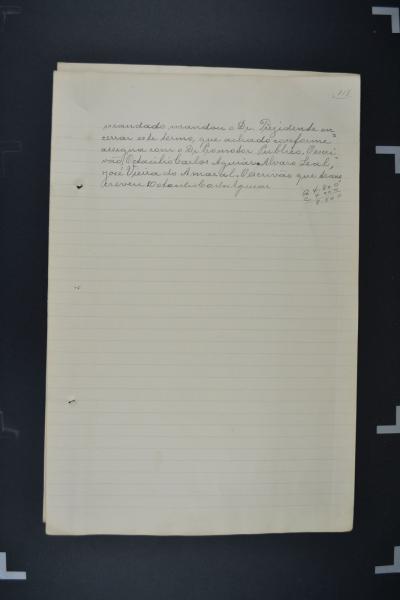 mandado, mandou o Dr. Prezidente en=
cerrar este termo, que achado conforme
assigna com o Dr Promotor Publico. O escri=
vão, Octacilio Carlos Aguiar. Alvaro Leal,
José Vieira do Amaral. O escrivão que trans
creveu Octacilio Carlos Aguiar